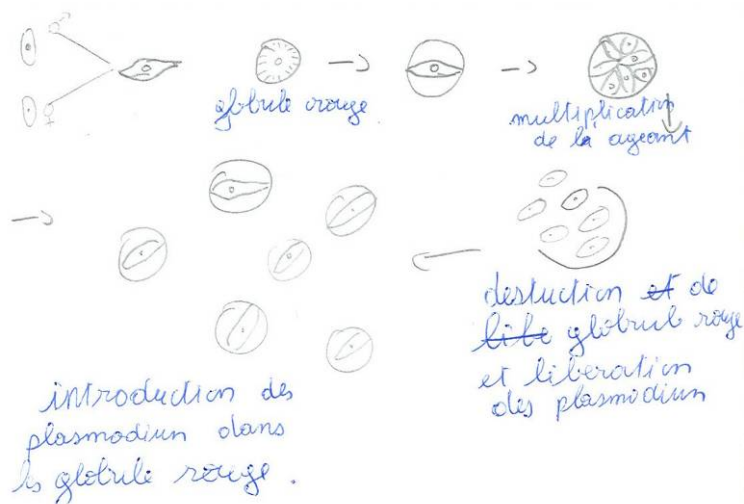 ♂
♀
globule rouge
multiplication
de la ageant
destuction et de
libe globule rouge
et liberation
des plasmodium
introduction des
plasmodium dans
ls globule rouge.